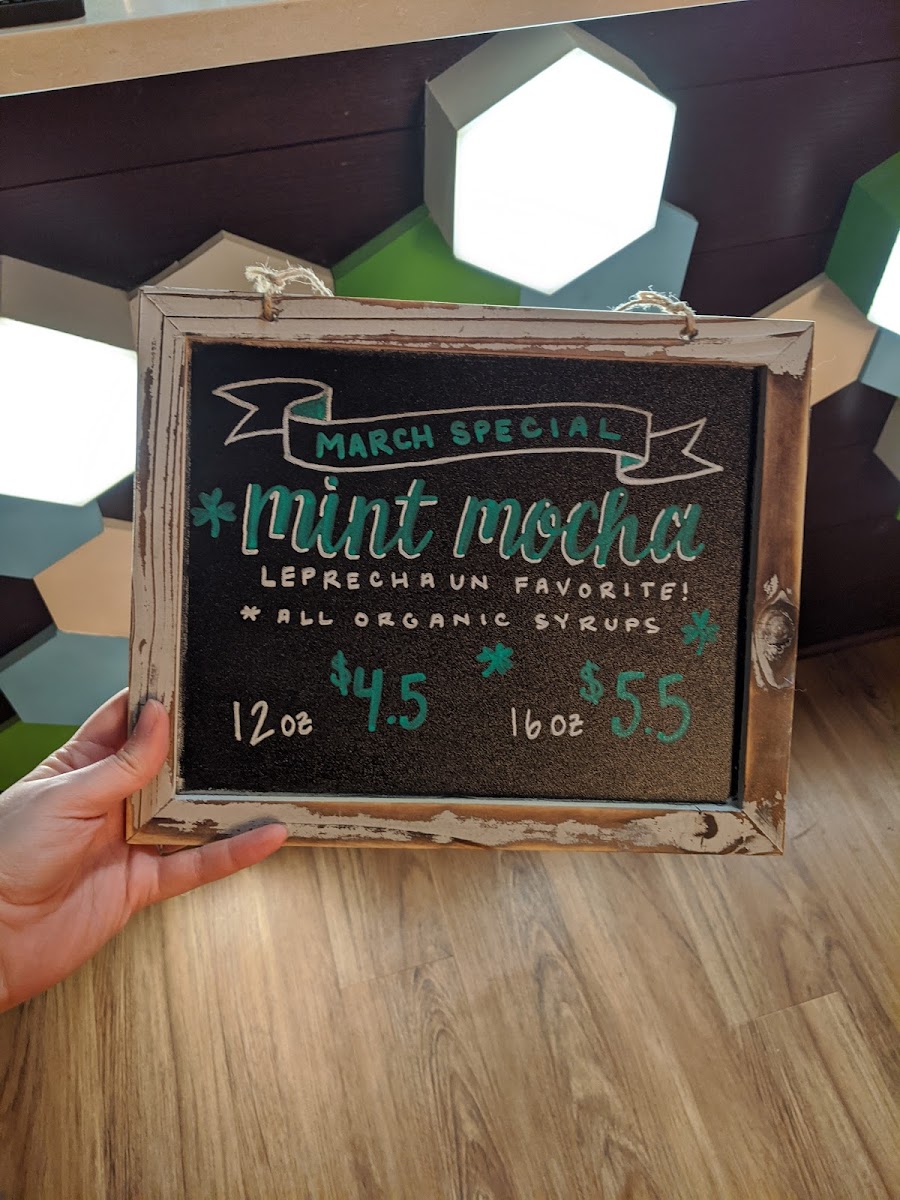 MARCH SPECIAL
mint mocha
LEPRECHAUN FAVORITE!
* ALL ORGANIC SYRUPS
12 oz $4.5 16 oz $5.5